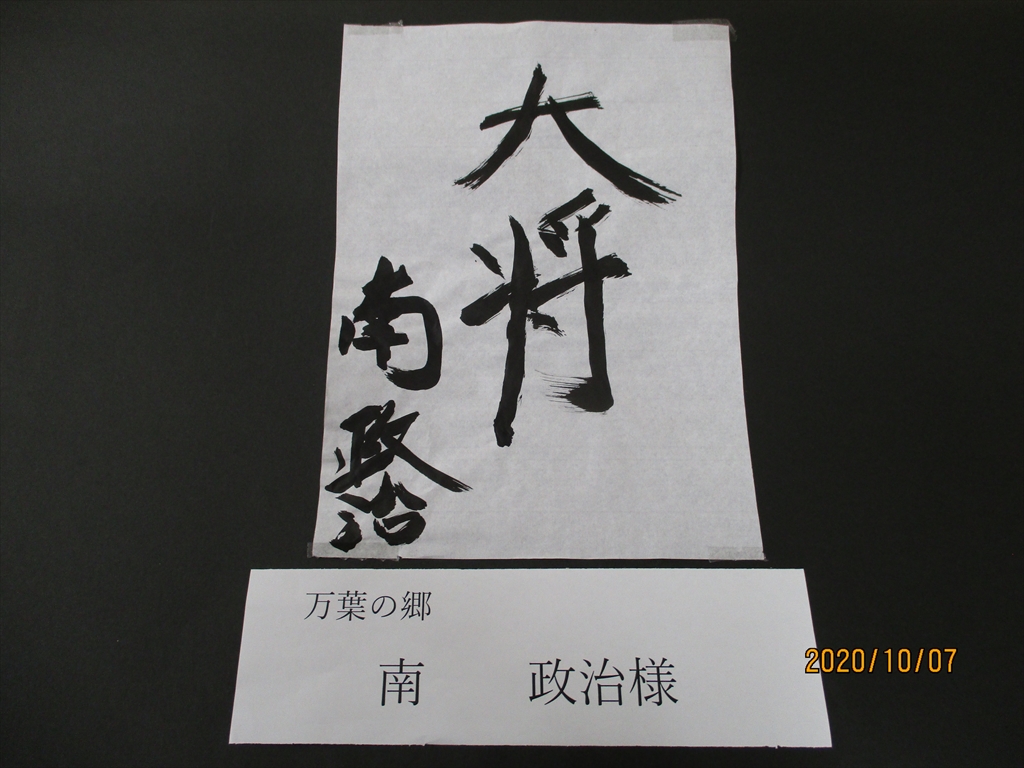 大将
南政治
万葉の郷
南 政治様
2020/10/07